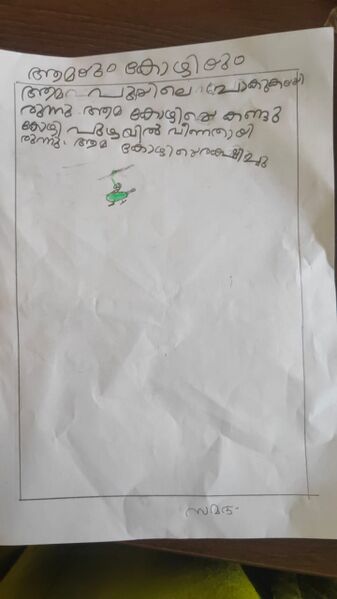 ആമയും കോഴിയും
ആമ പുഴയിലെ പോകുകയാ
രുന്നു. ആമ കോഴിയെ കണ്ടു
കോഴി പുഴയിൽ വീണതായി
രുന്നു. ആമ കോഴിയെ രക്ഷിച്ചു